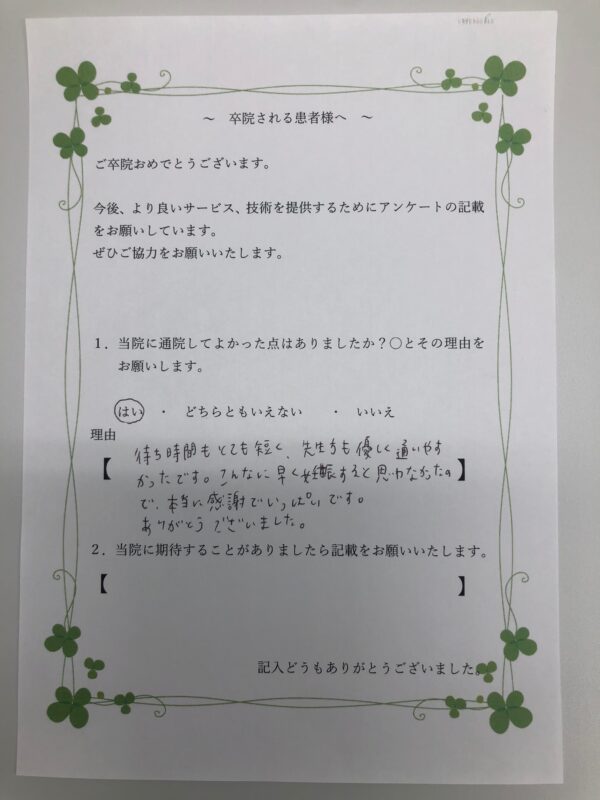 ～　卒院される患者様へ　～
ご卒院おめでとうございます。
今後、より良いサービス、技術を提供するためにアンケートの記載
をお願いしています。
ぜひご協力をお願いいたします。
１．当院に通院してよかった点はありましたか？〇とその理由を
お願いします。
はい　・　どちらともいえない　・　いいえ
理由
【待ち時間もとても短く、先生方も優しく通いやす
かったです。こんなに早く妊娠すると思わなかったの】
で、本当に感謝でいっぱいです。
ありがとうございました。
２．当院に期待することがありましたら記載をお願いいたします。
【　】
記入どうもありがとうございました。